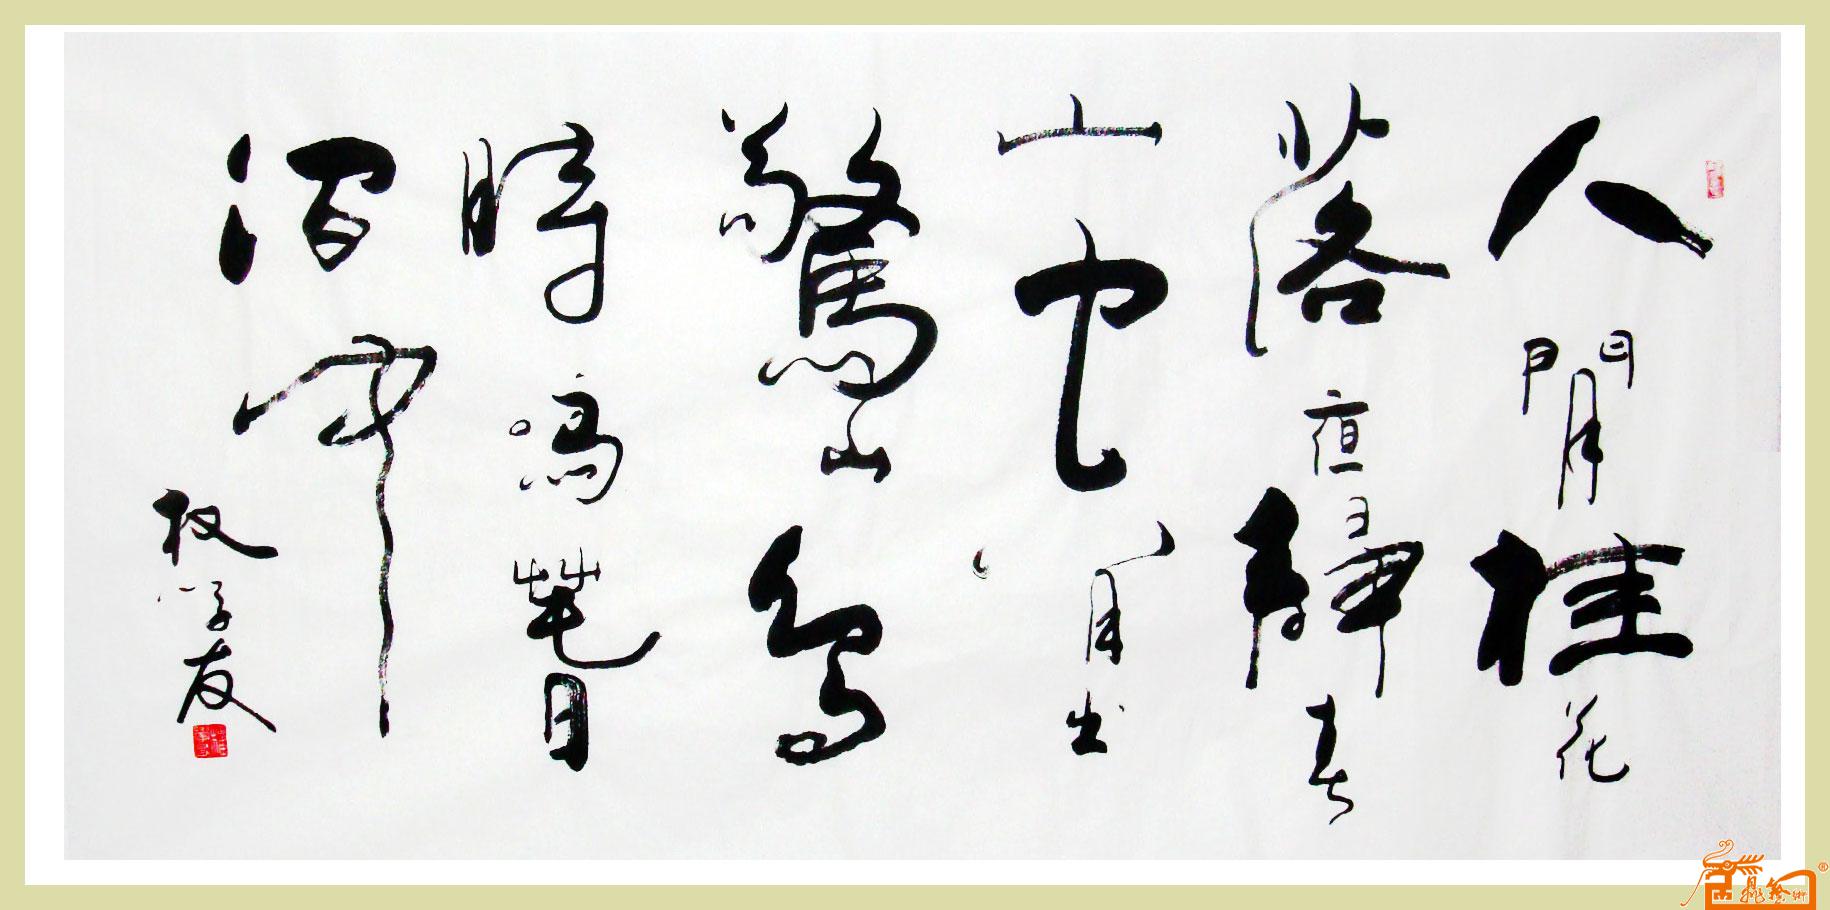 人閒桂花
落亱靜春
山空月出
驚山鳥
時鳴萅
澗中
权学友